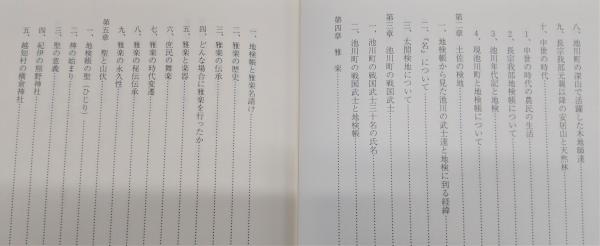 八、池川町の深山で活躍した木地師達
九、長宗我部元親以降の安居山と天然林
十、中世の時代
1、中世の時代の農民の生活
2、長宗我部地検帳について
3、池川年代記と地検
4、現池川町と地検帳について
第二章 土佐の検地
一、地検帳から見た池川の武士達と地検に到る経緯
二、「名」について
三、太閤検地について
第三章 池川町の戦国武士
一、池川町の戦国武士三十名の氏名
二、池川町の戦国武士と地検帳
第四章 雅楽
一、地検帳と雅楽名請け
二、雅楽の歴史
三、雅楽の伝承
四、どんな場合に雅楽を行ったか
五、雅楽と楽器
六、庶民の舞楽
七、雅楽の時代変遷
八、雅楽の秘伝伝承
九、雅楽の永久性
第五章 聖と山伏
一、地検帳の聖(ひじり)
二、神の始まり
三、聖の意義
四、紀伊の熊野神社
五、越知村の横倉神社